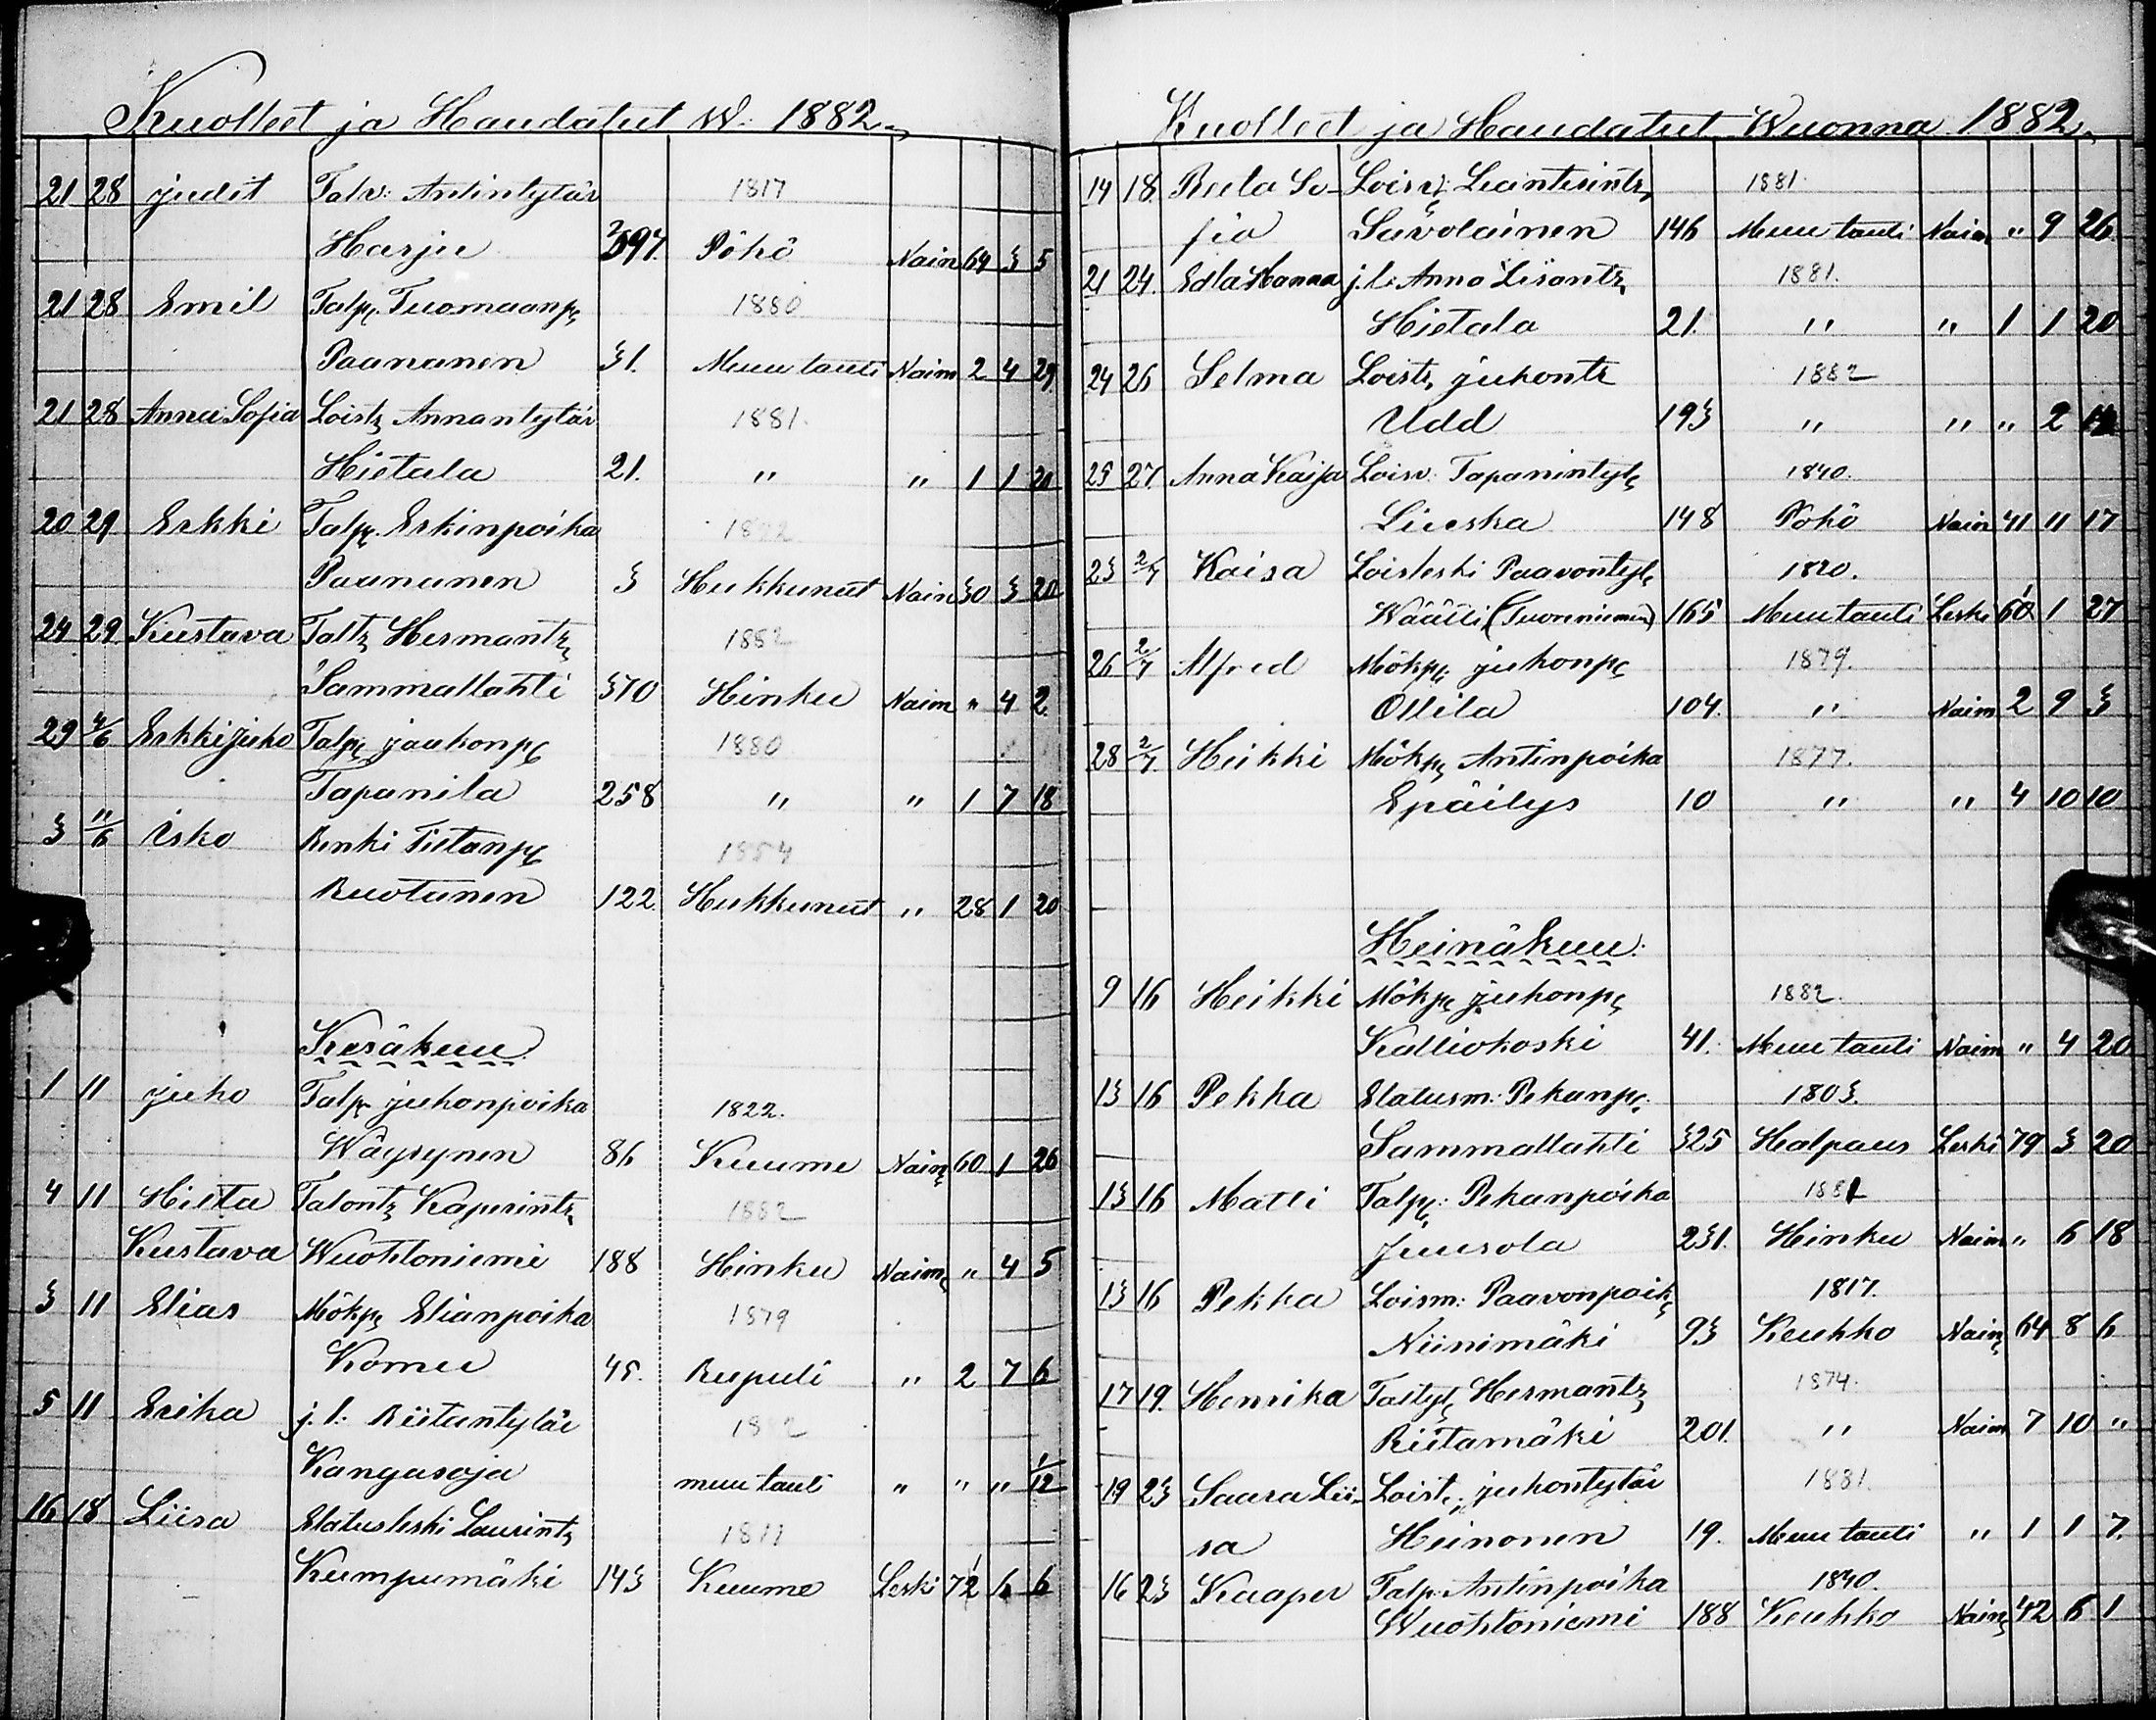 Kuolleet ja Haudatut W. 1882.
21 28 Judit Talv: Antintytär 1817
Harju 397 Pöhö Nain 64 3 5
21 28 Emil Talp. Tuomaanp. 1880
Paananen 31. Muu tauti Naim 2 4 29.
21 28 Anna Sofia Loistr Annantytär 1881.
Hietala 21. " " 1 1 20
20 29 Erkki Talp. Erkinpoika
Paananen 3 Hukkunut Nain 30 3 20
24 29 Kustava Taltr Hermantr 1882
Sammallahti 370 Hinku Naim " 4 2.
29 4/6 Erkki Juho Talp. Jaakonp. 1880
Tapanila 258 " " 1 7 18
3 11/6 Isko Renki Tietanp. 1854
Ruotanen 122. Hukkunut " 28 1 20
Kesäkuu
1 11 Juho Talp. Juhonpoika 1822.
Wäyrynen 86 Kuume Nain 60 1 26
4 11 Hilta Talontr Kaperintr 1882
Kustava Wuohtoniemi 188 Hinku Naim " 4 5
3 11 Elias Mökp. Elianpoika 1879
Komu 45. Rupuli " 2 7 6
5 11 Erika j. l. Riitantytär 1882
Kangasoja muu tauti " " " 1/12
16 18 Liisa Elatusleski Laurintr 1811
Kumpumäki 143 Kuume Leski 71 6 6
Kuolleet ja Haudatut Wuonna 1882.
14 18. Reeta So- Loisv: Leanterintr 1881.
fia Savolainen 146 Muu tauti Naim " 9 26
21 24. Edla Hanna j. l. Anna Liisantr 1881.
Hietala 21. " " 1 1 20
24 26 Selma Loistr Juhontr 1882
Udd 193 " " " 2
25 27. Anna Kaisa Loisv: Tapanintyt. 1840.
Liuska 148 Pöhö Nain 41 11 17
23 2/7 Kaisa Loisleski Paavontyt. 1820.
Wäätti (Tuoreniemen) 165 Muu tauti Leski 61 1 27
26 2/7 Alfred Mökp. Juhonp. 1879.
Ollila 104. " Naim 2 9 3
28 2/7. Heikki Mökp. Antinpoika 1877.
Epäilys 10 " " 4 10 10
Heinäkuu.
9 16 Heikki Mökp. Juhonp. 1882.
Kalliokoski 41. Muu tauti Naim " 4 20
13 16 Pekka Elatusm: Pekanp. 1803.
Sammallahti 325 Halpaus Leski 79 3 20
13 16 Matti Talp: Pekanpoika 1881
Juusola 231. Hinku Naim " 6 18
13 16 Pekka Loism: Paavonpoik. 1817.
Niinimäki 93 Keuhko Nain 64 8 6
17 19. Henrika Taltyt. Hermantr 1874.
Riitamäki 201. " Naim 7 10 "
19 23 Saara Lii- Loist. Juhontytär 1881.
sa Heinonen 19. Muu tauti " 1 1 7.
16 23 Kaaper Talp. Antinpoika 1840.
Wuohtoniemi 188 Keuhko Nain 42 6 1